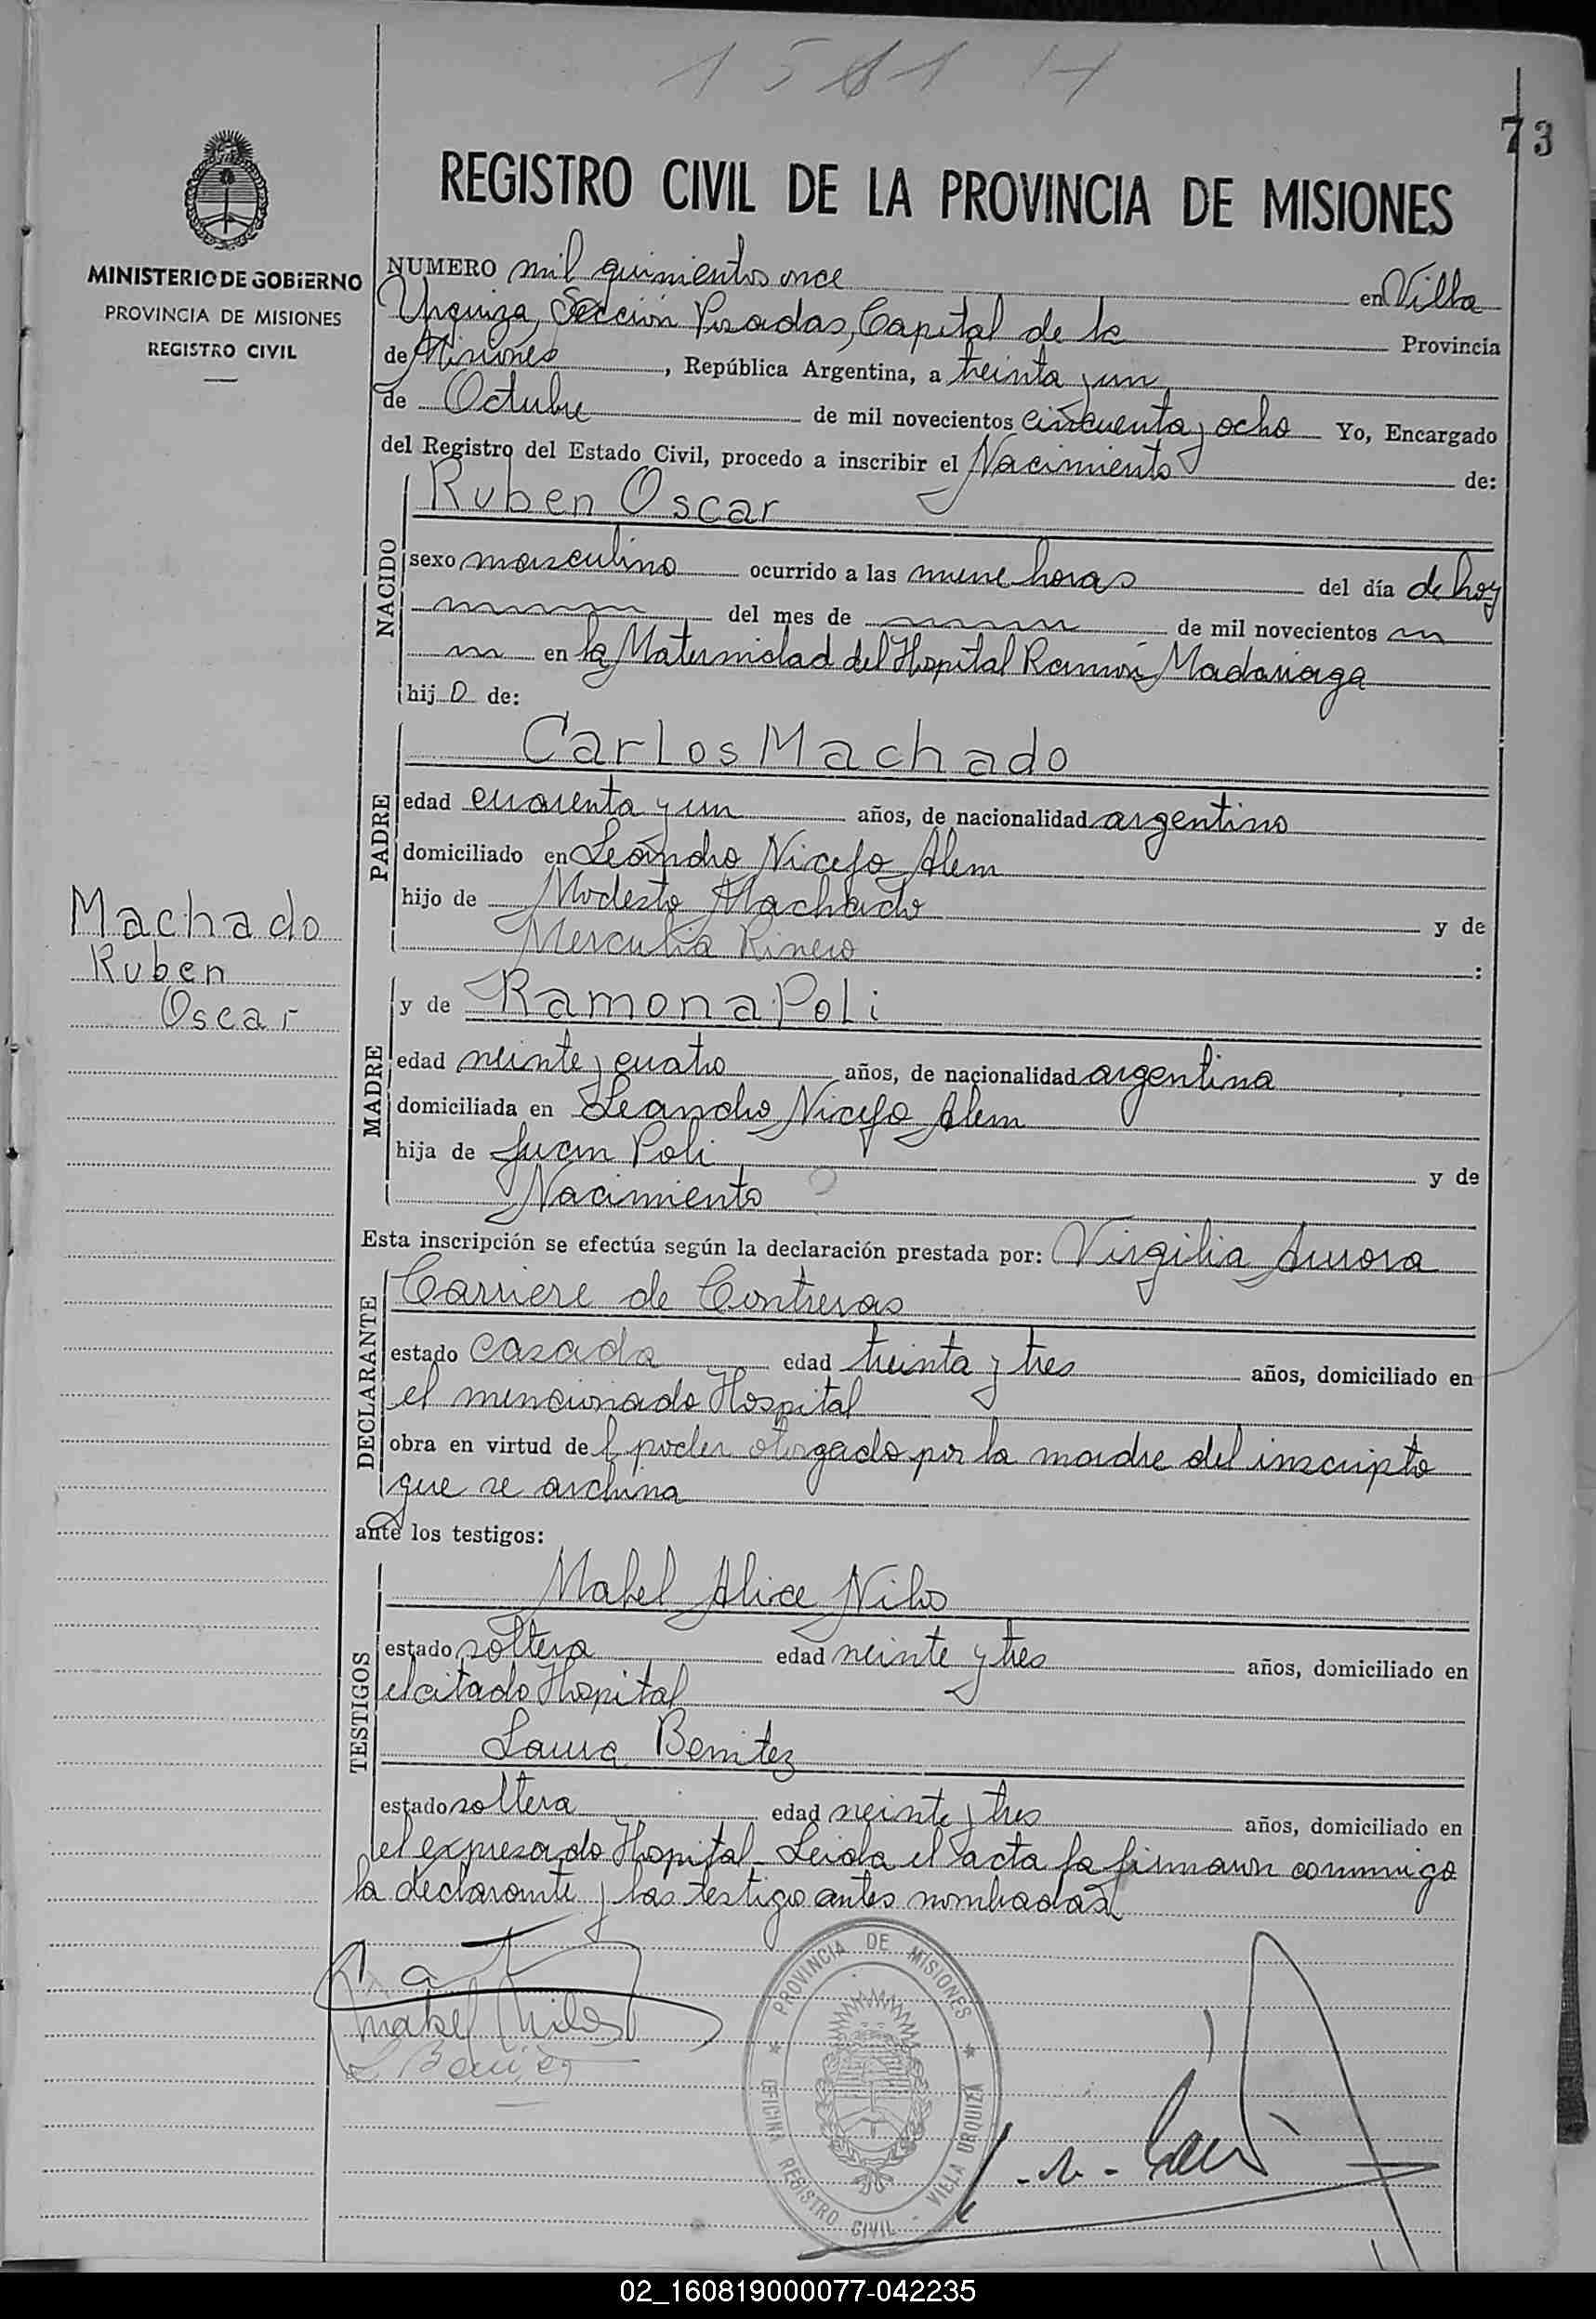 1511 H
73
REGISTRO CIVIL DE LA PROVINCIA DE MISIONES
MINISTERIO DE GOBIERNO
PROVINCIA DE MISIONES
REGISTRO CIVIL
NUMERO mil quinientos once en Villa
Urquiza, Sección Posadas, Capital de la Provincia
de Misiones, República Argentina, a treinta y un
de Octubre de mil novecientos cincuenta y ocho Yo, Encargado
del Registro del Estado Civil, procedo a inscribir el Nacimiento de:
NACIDO
Ruben Oscar
sexo masculino ocurrido a las nueve horas del día de hoy
del mes de de mil novecientos
en la Maternidad del Hospital Ramón Madariaga
hijo de:
PADRE
Carlos Machado
edad cuarenta y un años, de nacionalidad argentino
domiciliado en Leandro Nicefo Alem
hijo de Modesto Machado y de
:
Machado
Ruben
Oscar
MADRE
y de Ramona Poli
edad veinte y cuatro años, de nacionalidad argentina
domiciliada en Leandro Nicefo Alem
hija de Juan Poli y de
Nacimiento
Esta inscripción se efectúa según la declaración prestada por: Virgilia Aurora
DECLARANTE
Carriere de Contreras
estado casada edad treinta y tres años, domiciliado en
el mencionado Hospital
obra en virtud del poder otorgado por la madre del inscripto
que se archiva
ante los testigos:
TESTIGOS
Mabel Alice Nilos
estado soltera edad veinte y tres años, domiciliado en
el citado Hospital
Laura Benitez
estado soltera edad veinte y tres años, domiciliado en
el expresado Hospital - Leida el acta la firmaron conmigo
la declarante y las testigo antes nombradas
Mabel Nilos
L Benitez
PROVINCIA DE MISIONES
OFICINA REGISTRO CIVIL - VILLA URQUIZA
02_160819000077-042235